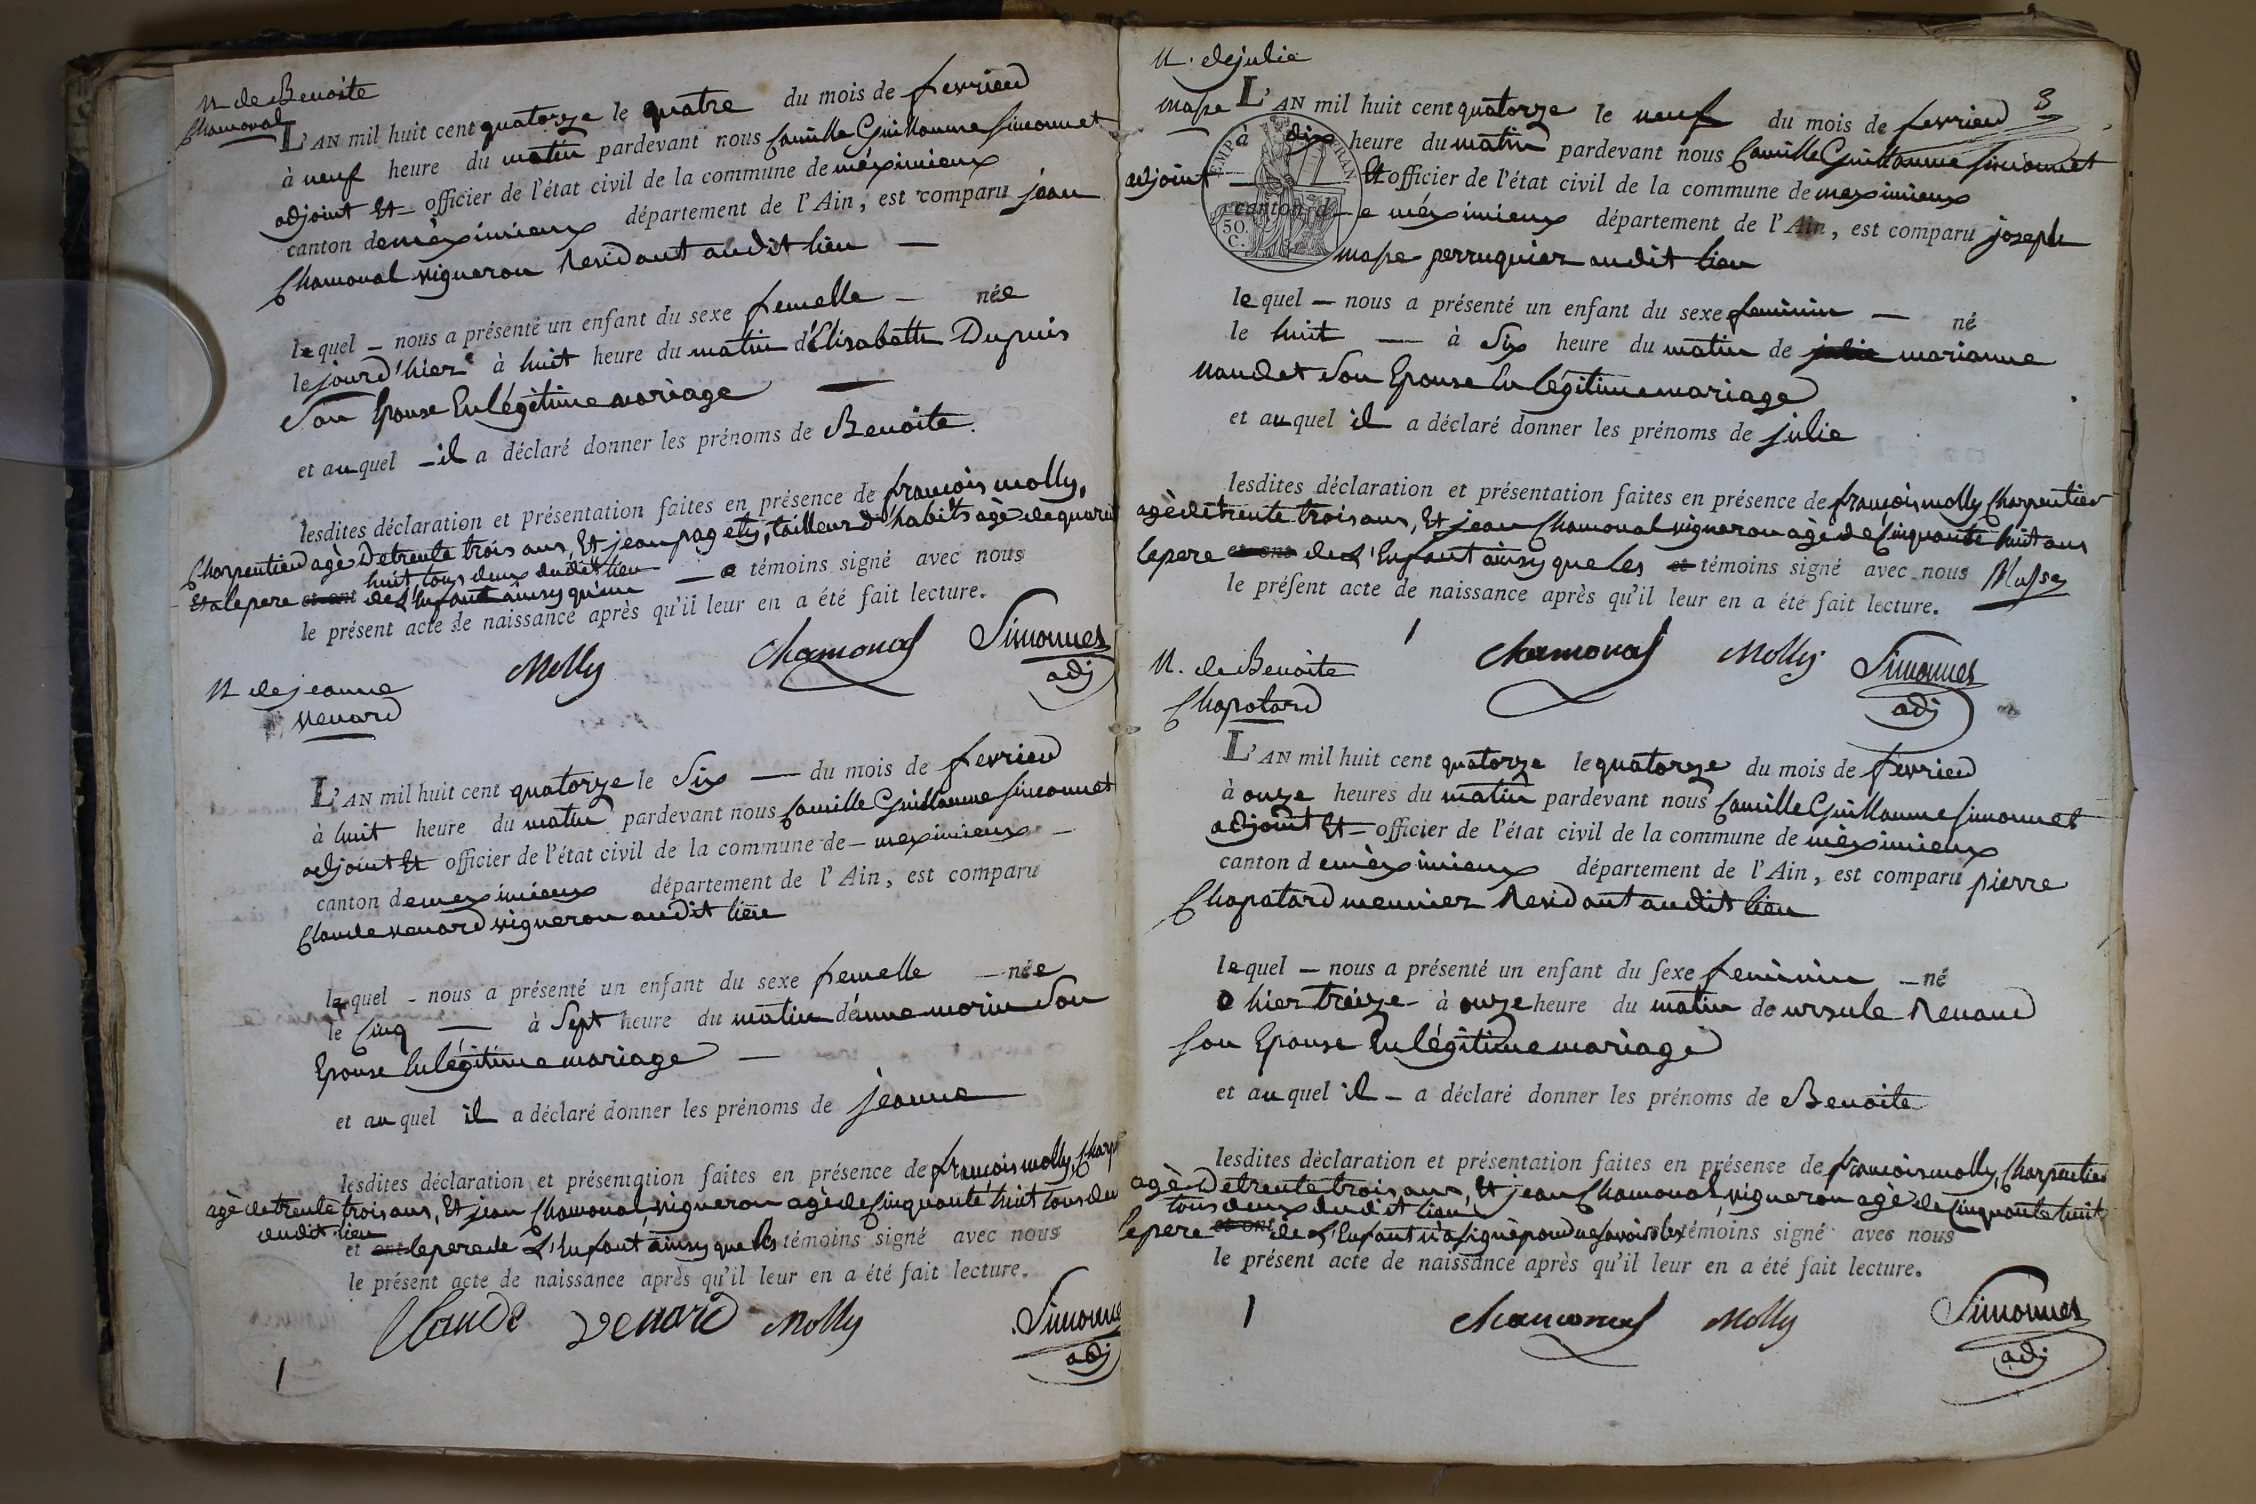 N. de Benoite
Chamonal
L'AN mil huit cent quatorze le quatre du mois de fevrier
à neuf heure du matin pardevant nous Camille Guillaume Simonnet
adjoint Et officier de l'état civil de la commune de méximieux
canton de méximieux département de l'Ain, est comparu jean
Chamonal vigneron Residant audit lieu
lequel nous a présenté un enfant du sexe femelle née
le jourd'hier à huit heure du matin d'Elisabeth Dupuis
Son Epouse En légitime mariage
et auquel il a déclaré donner les prénoms de Benoite.
lesdites déclaration et présentation faites en présence de françois molly,
Charpentier agè De trente trois ans, Et jean pagety, tailleur d'habits agè de quarante
huit, tous deux dudit lieu
Et a le pere et ont de L'Enfant ainsy qu'un témoins signé avec nous
le présent acte de naissance après qu'il leur en a été fait lecture.
Molly Chamonal Simonnet
adj
N. de jeanne
venard
L'AN mil huit cent quatorze le Six du mois de fevrier
à huit heure du matin pardevant nous Camille Guillaume Simonnet
adjoint Et officier de l'état civil de la commune de meximieux
canton de meximieux département de l'Ain, est comparu
Claude venard vigneron audit lieu
lequel nous a présenté un enfant du sexe femelle née
le Cinq à Sept heure du matin d'anne morin Son
Epouse En légitime mariage
et auquel il a déclaré donner les prénoms de jeanne
lesdites déclaration et présentation faites en présence de françois molly, Charp
agè de trente trois ans, Et jean Chamonal vigneron agè de Cinquante huit tous deu
dudit lieu
et ont le pere de L'Enfant ainsy que les témoins signé avec nous
le présent acte de naissance après qu'il leur en a été fait lecture.
Claude venard Molly Simonne
adj
3
N. de julie
masse
L'AN mil huit cent quatorze le neuf du mois de fevrier
à dix heure du matin pardevant nous Camille Guillaume Simonnet
adjoint Et officier de l'état civil de la commune de meximieux
canton de méximieux département de l'Ain, est comparu joseph
EMP FRAN
50
C.
masse perruquier audit lieu
lequel nous a présenté un enfant du sexe feminin né
le huit à Six heure du matin de julie marianne
naudet Son Epouse En légitime mariage
et auquel il a déclaré donner les prénoms de julie
lesdites déclaration et présentation faites en présence de françois molly Charpentier
agè de trente trois ans, Et jean Chamonal vigneron agè de Cinquante huit ans
le pere et ont de L'Enfant ainsy que les et témoins signé avec nous Masse
le présent acte de naissance après qu'il leur en a été fait lecture.
Chamonal Molly Simonnet
adj
N. de Benoite
Chapotard
L'AN mil huit cent quatorze le quatorze du mois de fevrier
à onze heures du matin pardevant nous Camille Guillaume Simonnet
adjoint Et officier de l'état civil de la commune de méximieux
canton de méximieux département de l'Ain, est comparu pierre
Chapotard meunier Residant audit lieu
lequel nous a présenté un enfant du sexe feminin né
hier treize à onze heure du matin de ursule Renaud
Son Epouse En légitime mariage
et auquel il a déclaré donner les prénoms de Benoite
lesdites déclaration et présentation faites en présence de françois molly, Charpentier
agè De trente trois ans, Et jean Chamonal vigneron agè de Cinquante huit
tous deux dudit lieu
le pere et ont de L'Enfant n'a signé pour ne savoir les témoins signé avec nous
le présent acte de naissance après qu'il leur en a été fait lecture.
Chamonal Molly Simonnet
adj